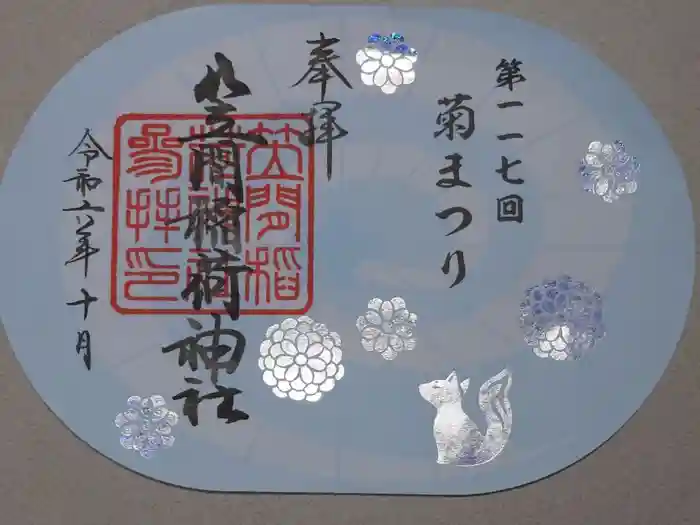 第一一七回
菊まつり
奉拝
笠間稲荷神社
笠間稲
荷神社
参拝印
令和六年十月